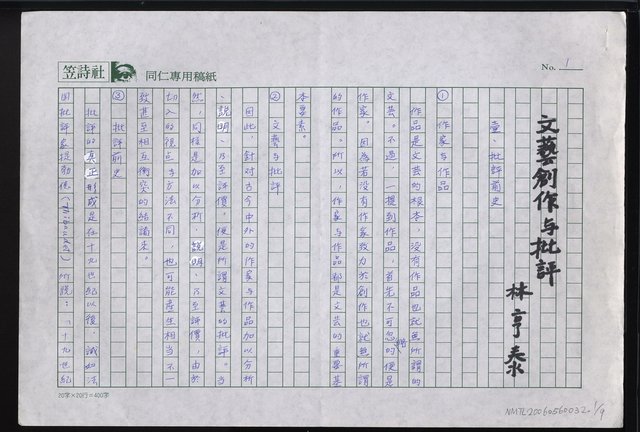 笠詩社
同仁專用稿紙
No. 1
文藝創作与批評
林亨泰
壹、批評前史
① 作家与作品
作品是文芸的根本，沒有作品也就無所謂的
文芸。不過，一提到作品，首先不可忽略的便是
作家。因為若沒有作家致力於創作也就無所謂
的作品。所以，作家与作品都是文芸的重要基
本要素。
② 文藝与批評
因此，針對古今中外的作家与作品加以分析
、說明、乃至評價，便是所謂文芸的批評。當
然，同樣是加以分析、說明、乃至評價，由於
切入的視点与方法不同，也可能產生相当不一
致甚至相互衝突的結論來。
③ 批評前史
批評的真正形成是在十九世紀以後，誠如法
國批評家提勃德（Thibaudet）所說：「十九世紀
20字×20行=400字
NMTL20060560032 1/9